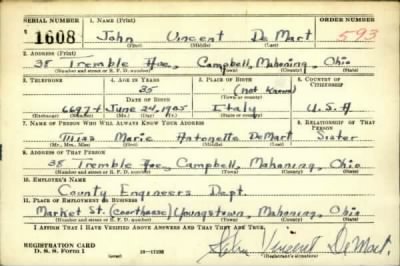 SERIAL NUMBER 1. NAME (Print) ORDER NUMBER
1608 John Vincent DeMart 593
(First) (Middle) (Last)
2. ADDRESS (Print)
38 Tremble Ave, Campbell, Mahoning, Ohio
(Number and street or R. F. D. number) (Town) (County) (State)
3. TELEPHONE 4. AGE IN YEARS 5. PLACE OF BIRTH 6. COUNTRY OF CITIZENSHIP
35 (not known)
DATE OF BIRTH (Town or county)
June 24, 1905 Italy U.S.A
(Exchange) (Number) (Mo.) (Day) (Yr.) (State or country)
7. NAME OF PERSON WHO WILL ALWAYS KNOW YOUR ADDRESS 8. RELATIONSHIP OF THAT PERSON
Miss Marie Antonette DeMart Sister
(Mr., Mrs., Miss) (First) (Middle) (Last)
9. ADDRESS OF THAT PERSON
38 Tremble Ave, Campbell, Mahoning, Ohio
(Number and street or R. F. D. number) (Town) (County) (State)
10. EMPLOYER'S NAME
County Engineers Dept.
11. PLACE OF EMPLOYMENT OR BUSINESS
Market St. (Courthouse) Youngstown, Mahoning, Ohio
(Number and street or R. F. D. number) (Town) (County) (State)
I AFFIRM THAT I HAVE VERIFIED ABOVE ANSWERS AND THAT THEY ARE TRUE.
REGISTRATION CARD
D. S. S. Form 1 John Vincent DeMart